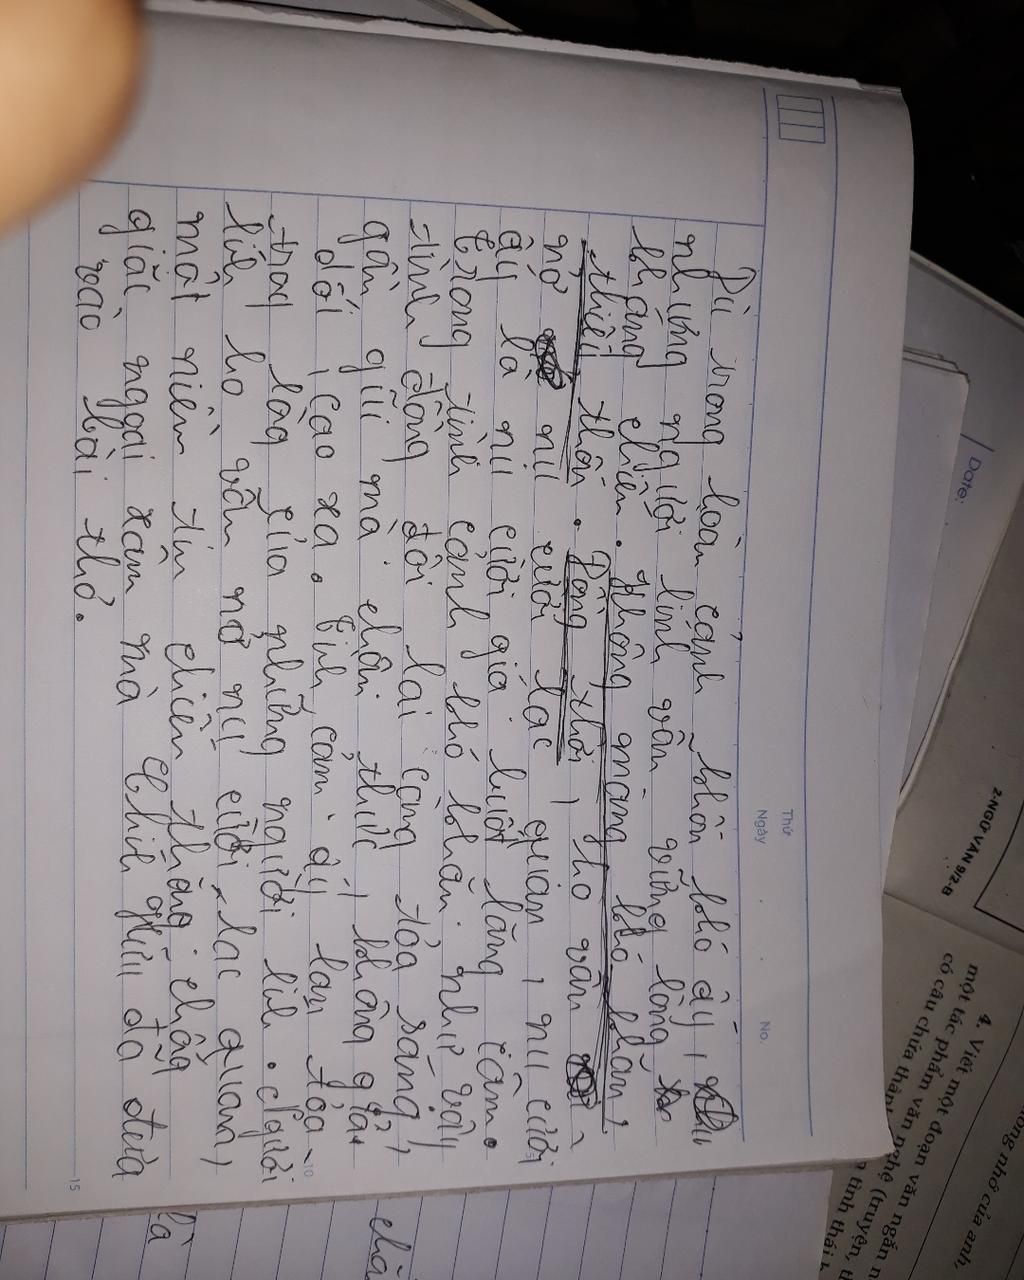 Thứ
Ngày
No.
Dù trong hoàn cảnh khốn khó ấy,
nhưng người lính vẫn vững lòng
kháng chiến. Không màng khó khăn,
thiếu thốn. Đồng thời, họ vẫn
nở nụ cười lạc quan, nụ cười
ấy là nụ cười giá buốt lăng căm.
trong tình cảnh khó khăn như vậy
tình đồng đội lại càng tỏa sáng,
gần gũi mà chân thực, không giả
dối, cao xa. Tình cảm ấy lan tỏa
trong lòng của những người lính. Người
lính họ vẫn nở nụ cười lạc quan,
một niềm tin chiến thắng chống
giặc ngoại xâm mà Chính Hữu đã đưa
vào bài thơ.
10
15
Date:
2-NGỮ VĂN 9/2-B
ong nhớ của anh,
4. Viết một đoạn văn ngắn n
một tác phẩm văn nghệ (truyện, t
có câu chứa thàn
n tình thái
là
chă